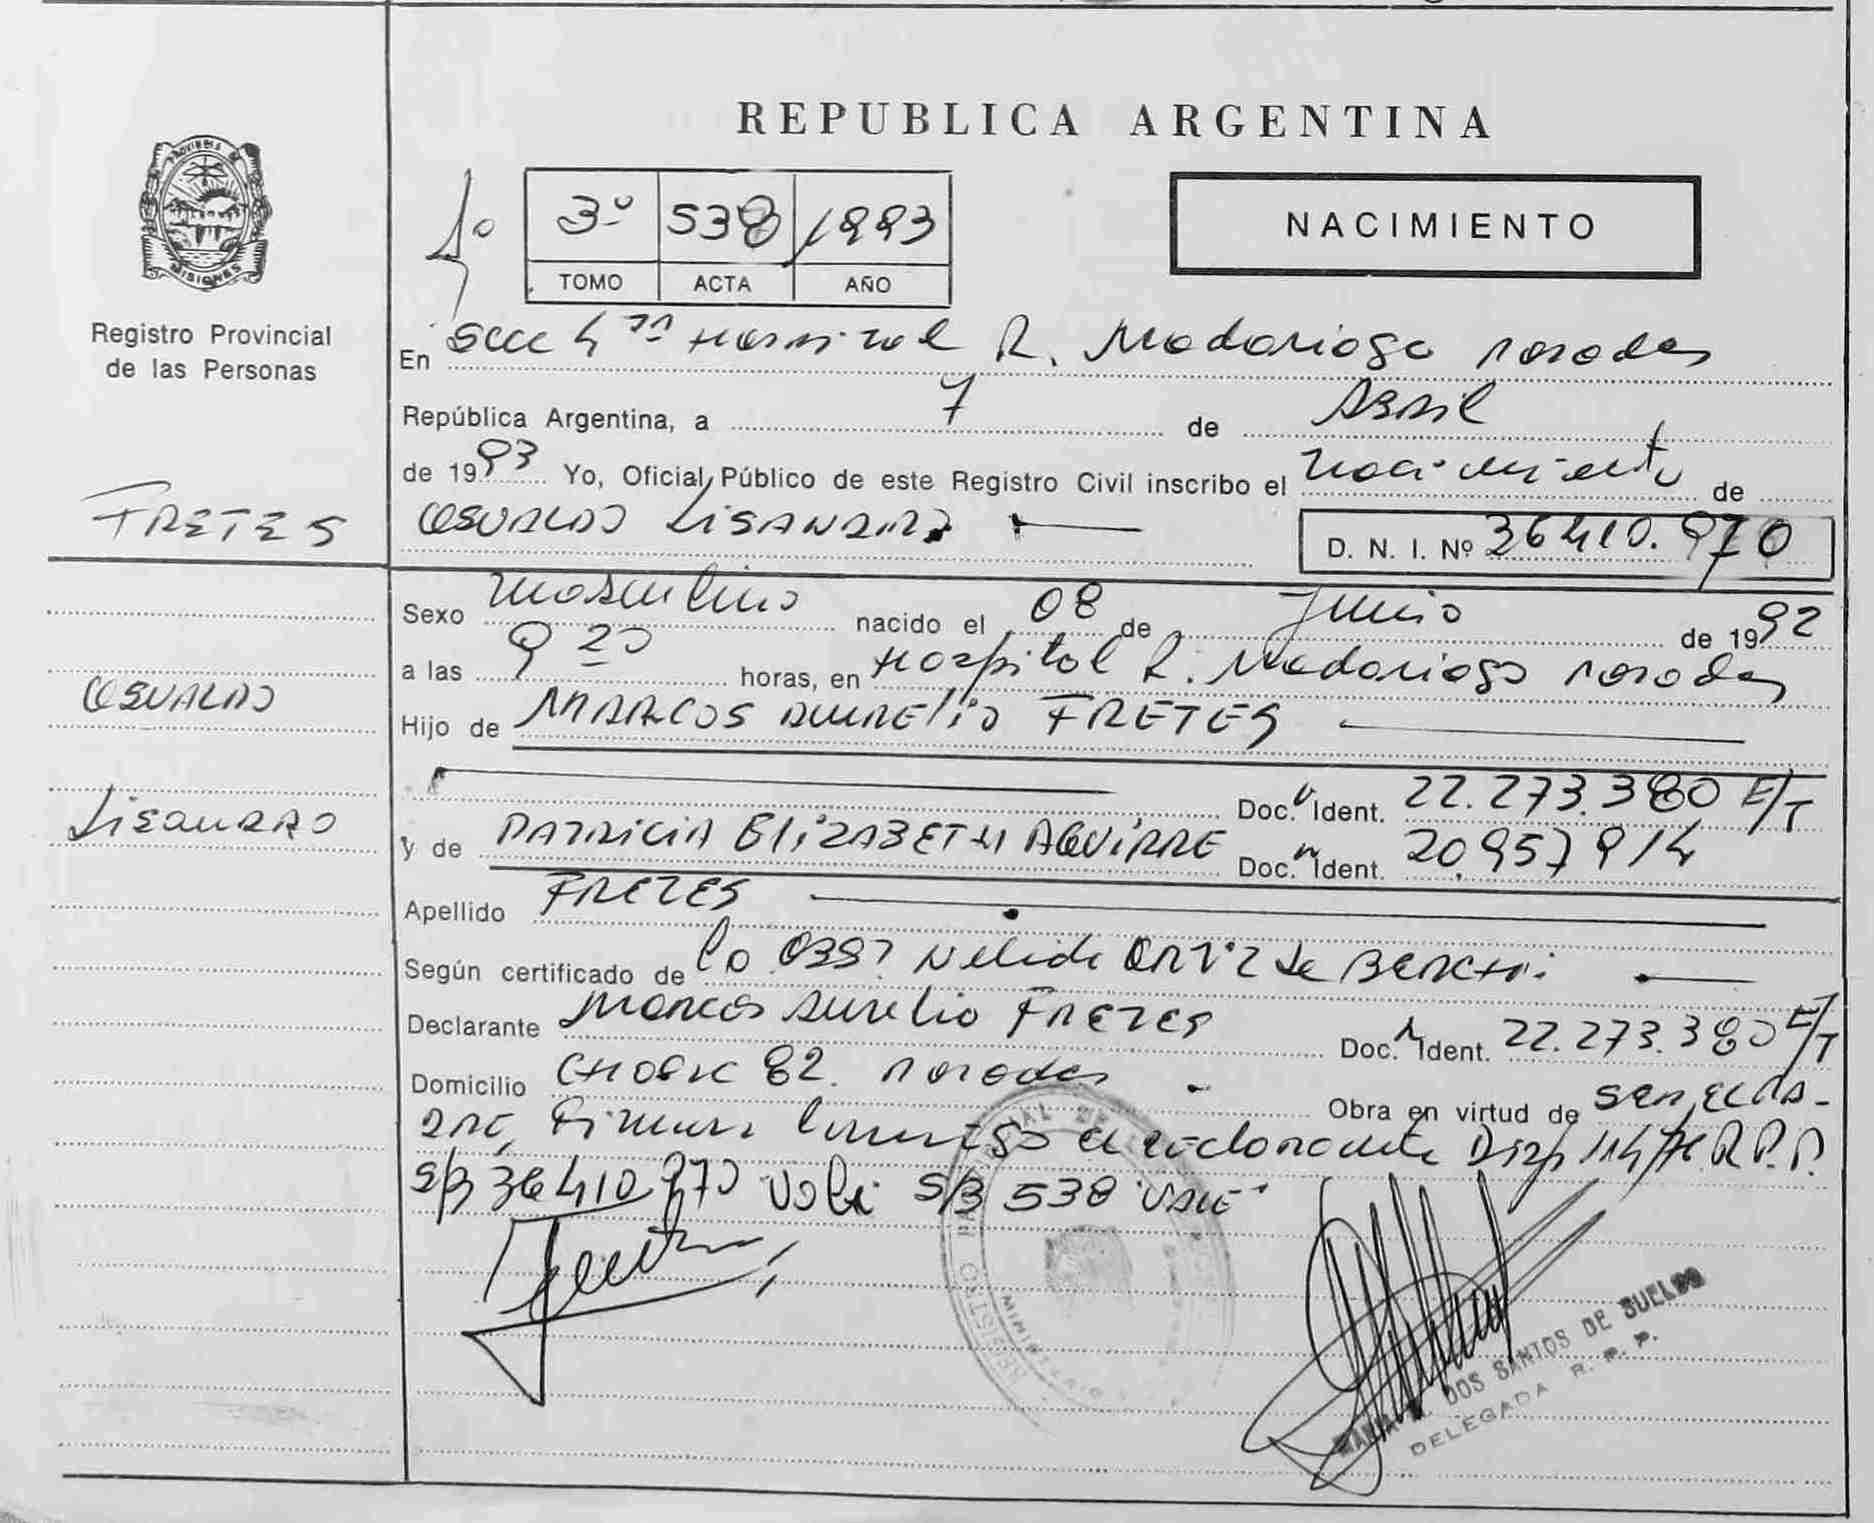 REPUBLICA ARGENTINA
PROVINCIA DE
MISIONES
Registro Provincial
de las Personas
1º
3º 538 1993
TOMO ACTA AÑO
NACIMIENTO
En Secc 4ta Hospital R. Madariaga Posadas
República Argentina, a 7 de Abril
de 1993 Yo, Oficial Público de este Registro Civil inscribo el nacimiento de
FRETES
OSVALDO LISANDRO
D. N. I. Nº 36410.970
Sexo masculino nacido el 08 de Junio de 1992
a las 9 20 horas, en Hospital R. Madariaga Posadas
OSVALDO
Hijo de MARCOS AURELIO FRETES
Doc. Ident. 22.273.380 E/T
LISANDRO
y de PATRICIA ELIZABETH AGUIRRE Doc. Ident. 20.957914
Apellido FRETES
Según certificado de la Obst Nelida ORTIZ de
Declarante Marcos Aurelio FRETES Doc. Ident. 22.273.380 E/T
Domicilio 82. Posadas
Obra en virtud de ser, el
Firma conmigo el declarante Disp 114/ R.P.P.
S/B 36410970 Vale S/B 538 "VALE"
DOS SANTOS DE SUELDO
DELEGADA R. P. P.